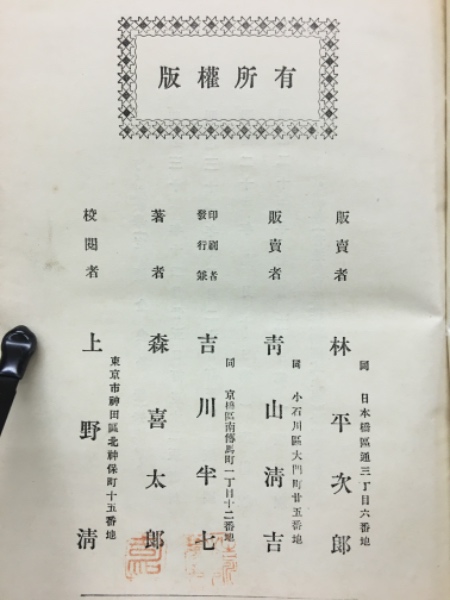 版權所有
校閲者 上野清
東京市神田區北神保町十五番地
著者 森喜太郎
發行兼
印刷者
吉川半七
同 京橋區南傳馬町一丁目十二番地
販賣者 青山清吉
同 小石川區大門町廿五番地
販賣者 林平次郎
同 日本橋區通三丁目六番地